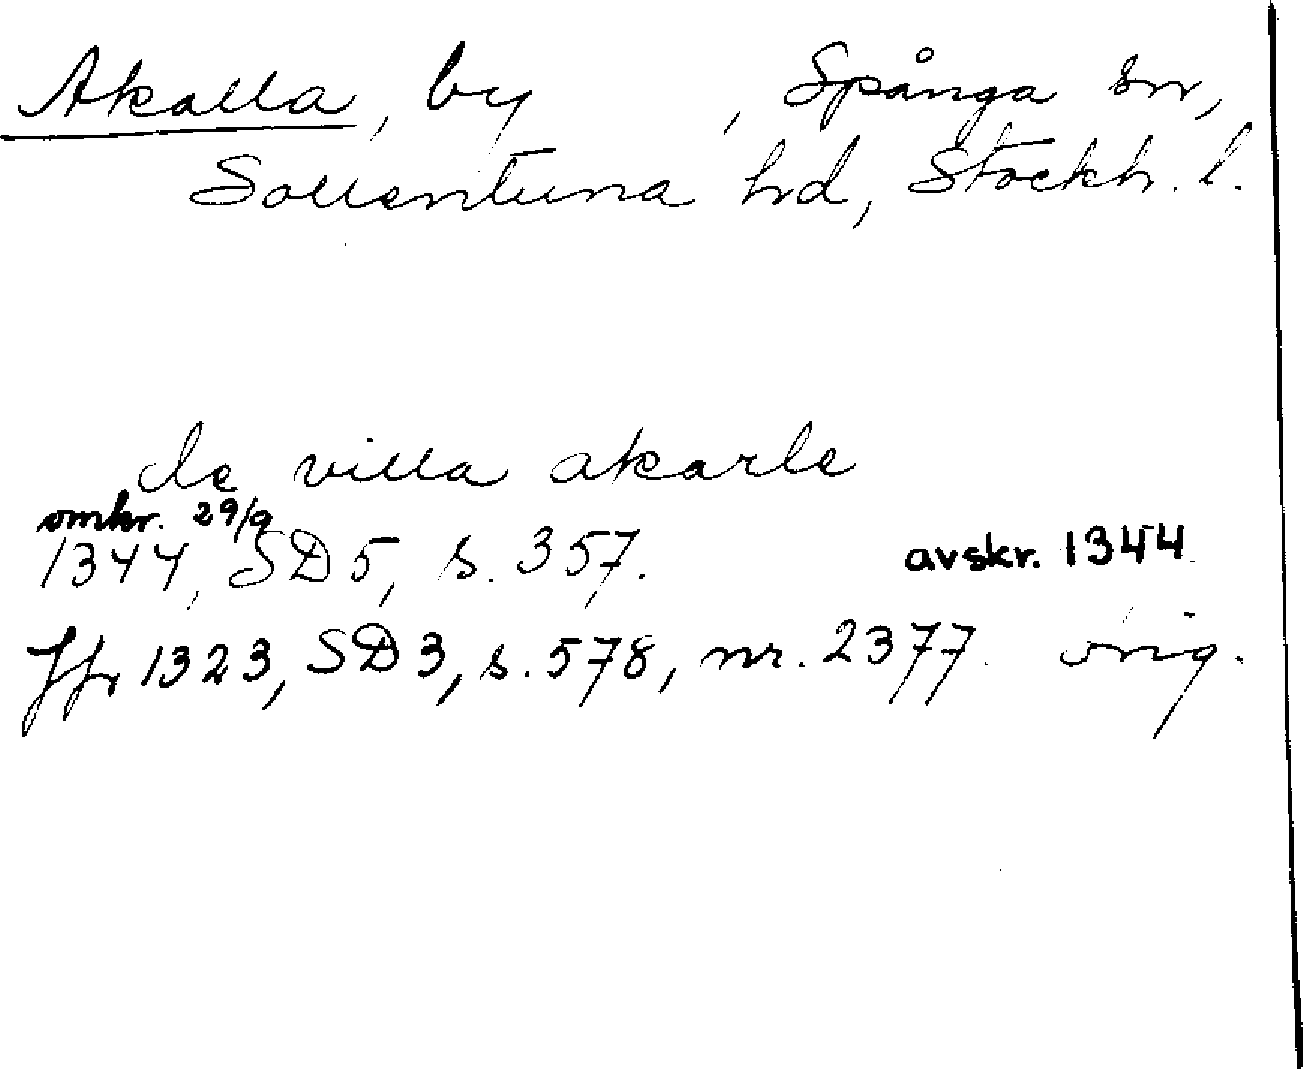 Akalla, by , Spånga sn,
Sollentuna hd, Stockh. l.
de villa akarle
omkr. 29/9
1344, SD 5, s. 357. avskr. 1344
Jfr 1323, SD 3, s. 578, nr. 2377. orig.